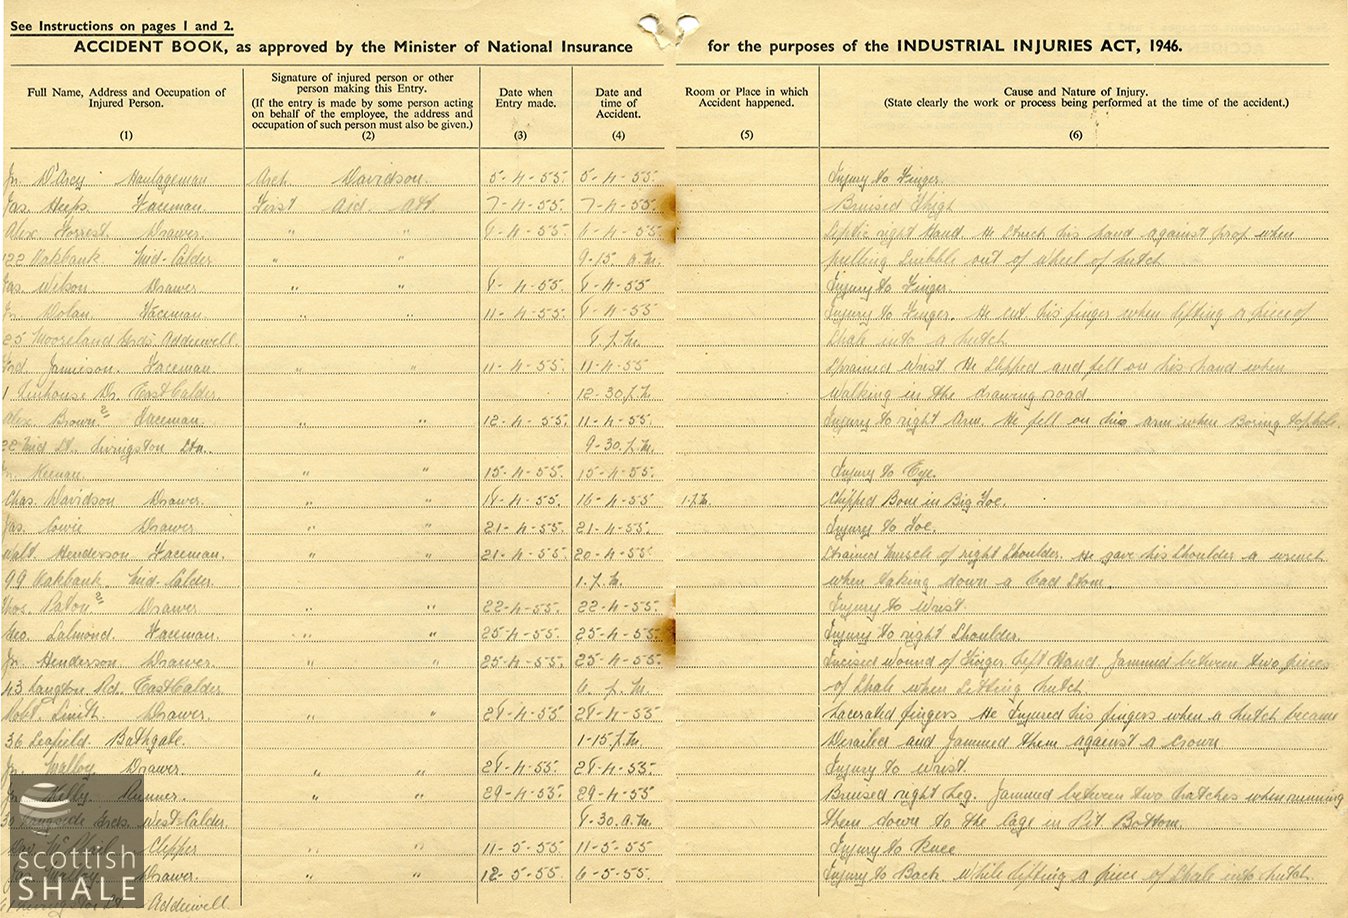 See Instructions on pages 1 and 2.
ACCIDENT BOOK, as approved by the Minister of National Insurance for the purposes of the INDUSTRIAL INJURIES ACT, 1946.
Full Name, Address and Occupation of Injured Person.
(1)
Signature of injured person or other person making this Entry.
(If the entry is made by some person acting on behalf of the employee, the address and occupation of such person must also be given.)
(2)
Date when Entry made.
(3)
Date and time of Accident.
(4)
Room or Place in which Accident happened.
(5)
Cause and Nature of Injury.
(State clearly the work or process being performed at the time of the accident.)
(6)
Jn. D'Arcy Haulageman Arch. Davidson. 5-4-55. 5-4-55. Injury to Finger.
Jas Heeps Faceman. First Aid. Att 7-4-55. 7-4-55. Bruised Thigh
Alex. Forrest Drawer. " " -4-55. -4-55. Septic right Hand. He struck his hand against prop when
122 Oakbank Mid-Calder " " 9-15. a.m. pulling Snibble out of wheel of hutch
Jas. Wilson Drawer " " -4-55. -4-55. Injury to Finger.
Jn. Dolan Faceman. " " 11-4-55. -4-55 Injury to Finger. He cut his finger when lifting a piece of
25 Mooreland Grds. Addiewell. p.m. Shale into a hutch
Jamieson. Faceman. " " 11-4-55. 11-4-55 Sprained Wrist. He slipped and fell on his hand when
1 Linhouse Dr. East Calder 12-30.p.m. walking in the drawing road
Alex Brown 2 Faceman. " " 12-4-55. 11-4-55 Injury to right Arm. He fell on his arm when Boring tophole.
22 Mid St. Livingston Stn.. 9-30.p.m.
Jn. Keenan. " " 15-4-55. 15-4-55. Injury to Eye.
Chas. Davidson Drawer. " " -4-55. -4-55 1.p.m. Chipped Bone in Big Toe.
Jas. Cowie Drawer " " 21-4-55. 21-4-55. Injury to Toe.
Walt Henderson Faceman. " " 21-4-55. 20-4-55. Strained Muscle of right Shoulder. He gave his Shoulder a wrench
99 Oakbank Mid-Calder. 1.p.m. when taking down a bad Stone.
Thos. Paton 2 Drawer " " 22-4-55. 22-4-55. Injury to Wrist.
Geo. Salmond. Faceman. " " 25-4-55. 25-4-55. Injury to right Shoulder.
Jn. Henderson Drawer. " " 25-4-55. 25-4-55. Incised wound of Finger Left Hand. Jammed between two pieces
43 Langton Rd. East Calder p.m. of Shale when Lifting hutch
Robt. Smith. Drawer. " " -4-55 -4-55 Lacerated fingers He Injured his fingers when a hutch became
36 Leafield. Bathgate. 1-15.p.m. Derailed and Jammed them against a crown
Jn. Malloy Drawer. " " -4-55. -4-55. Injury to wrist.
Jn. Kelly Runner. " " 29-4-55. 29-4-55. Bruised right Leg. Jammed between two hutches when running
30 Langside Grds. West Calder. -30.a.m. them down to the Cage in Pit Bottom.
Clipper " " 11-5-55 11-5-55 Injury to Knee
Jas. Malloy Drawer. " " 12-5-55 6-5-55. Injury to Back. While lifting a piece of Shale into hutch.
Addiewell.
scottish
SHALE